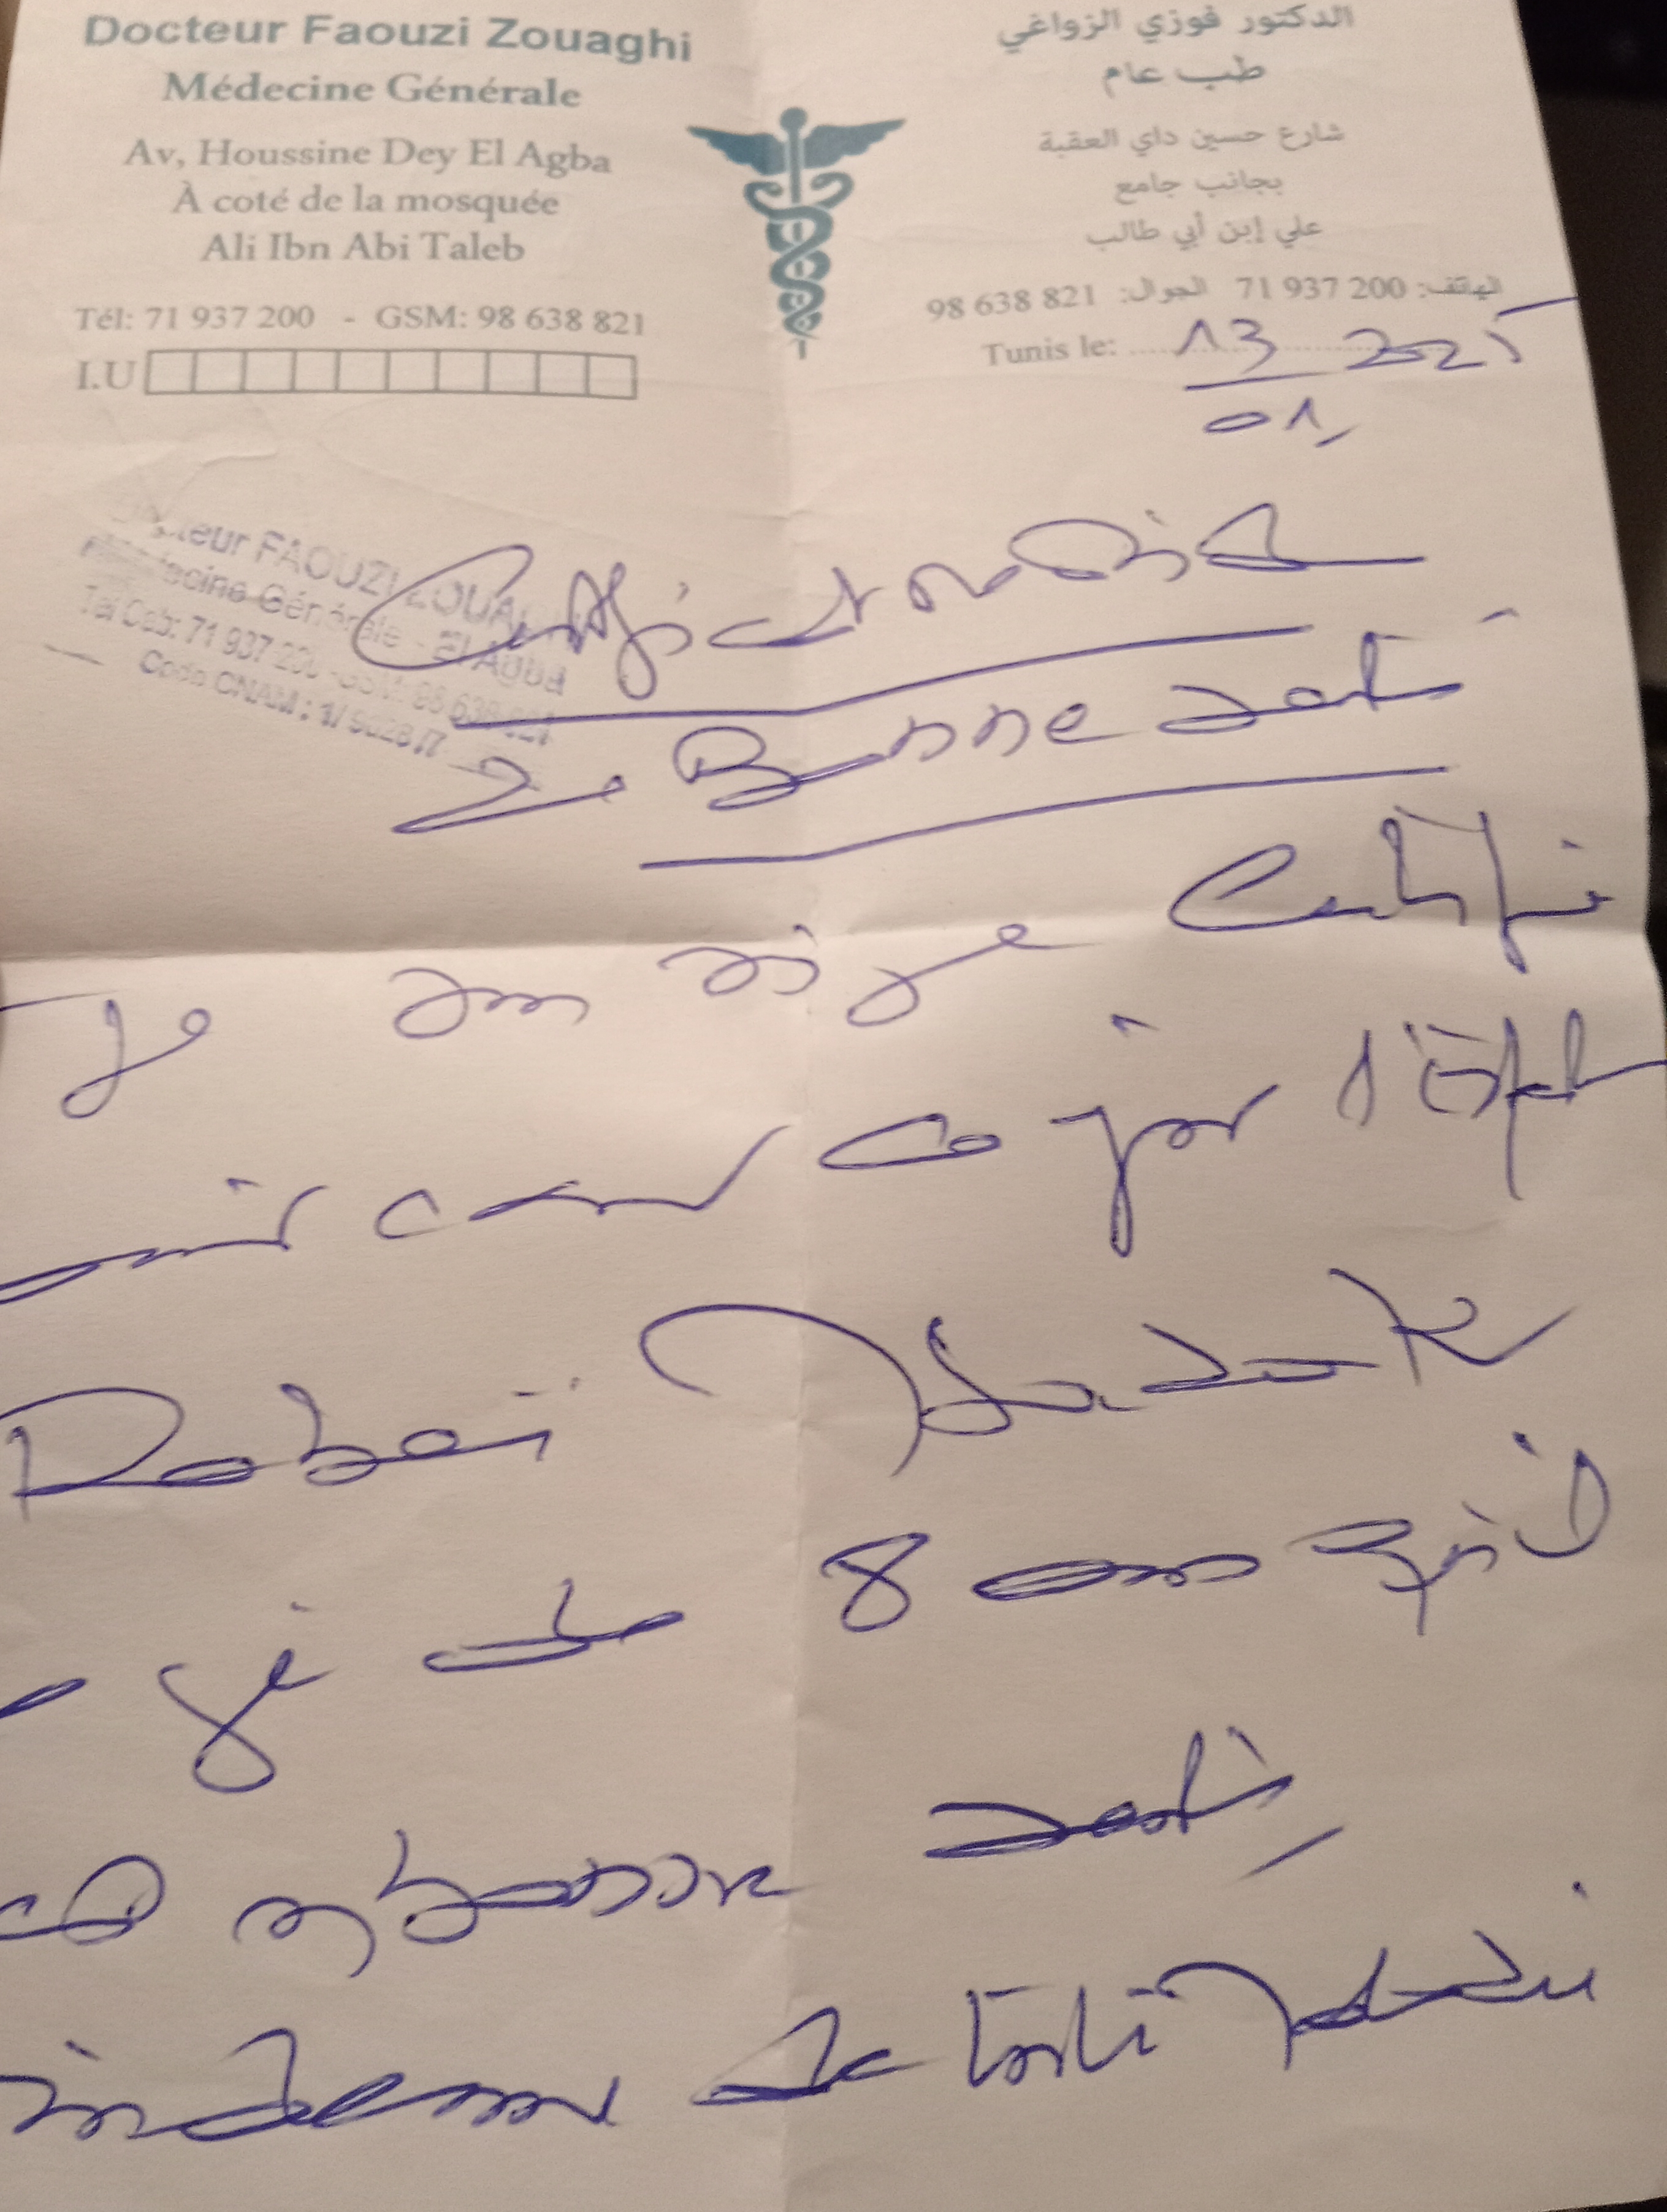 Docteur Faouzi Zouaghi
Médecine Générale
Av, Houssine Dey El Agba
À coté de la mosquée
Ali Ibn Abi Taleb
Tél: 71 937 200 - GSM: 98 638 821
I.U
الدكتور فوزي الزواغي
طب عام
شارع حسين داي العقبة
بجانب جامع
علي إبن أبي طالب
الهاتف: 200 937 71 الجوال: 821 638 98
Tunis le: 13 2025
01
Docteur FAOUZI ZOUAGHI
Médecine Générale - El Agba
Tel Cab: 71 937 200 - GSM: 98 638 821
Code CNAM : 1/
Certificat médical
de Bonne santé
Je soussigné Certifie
avoir examiné ce jour l'
Rabai
âgé de 8 ans qu'il
est en bonne santé
indemne de toute